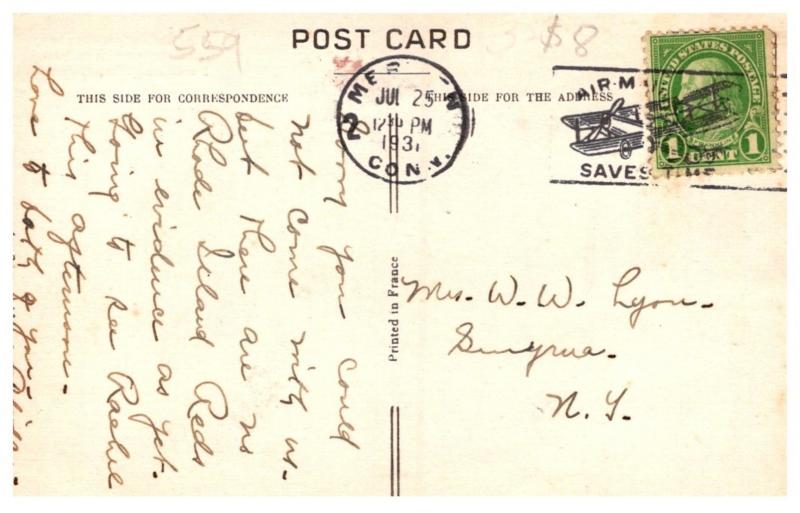 559
$8
POST CARD
THIS SIDE FOR CORRESPONDENCE
THIS SIDE FOR THE ADDRESS
JUL 25
12 PM
1931
CONN.
AIR-M
SAVES TIME
UNITED STATES POSTAGE
1 CENT 1
Printed in France
Sorry you could
not come with us-
but there are no
Rhode Island Reds
in evidence as yet-
Going to see Rachel
this afternoon-
Love to both of you
Mrs. W. W. Lyon-
Smyrna-
N. Y.